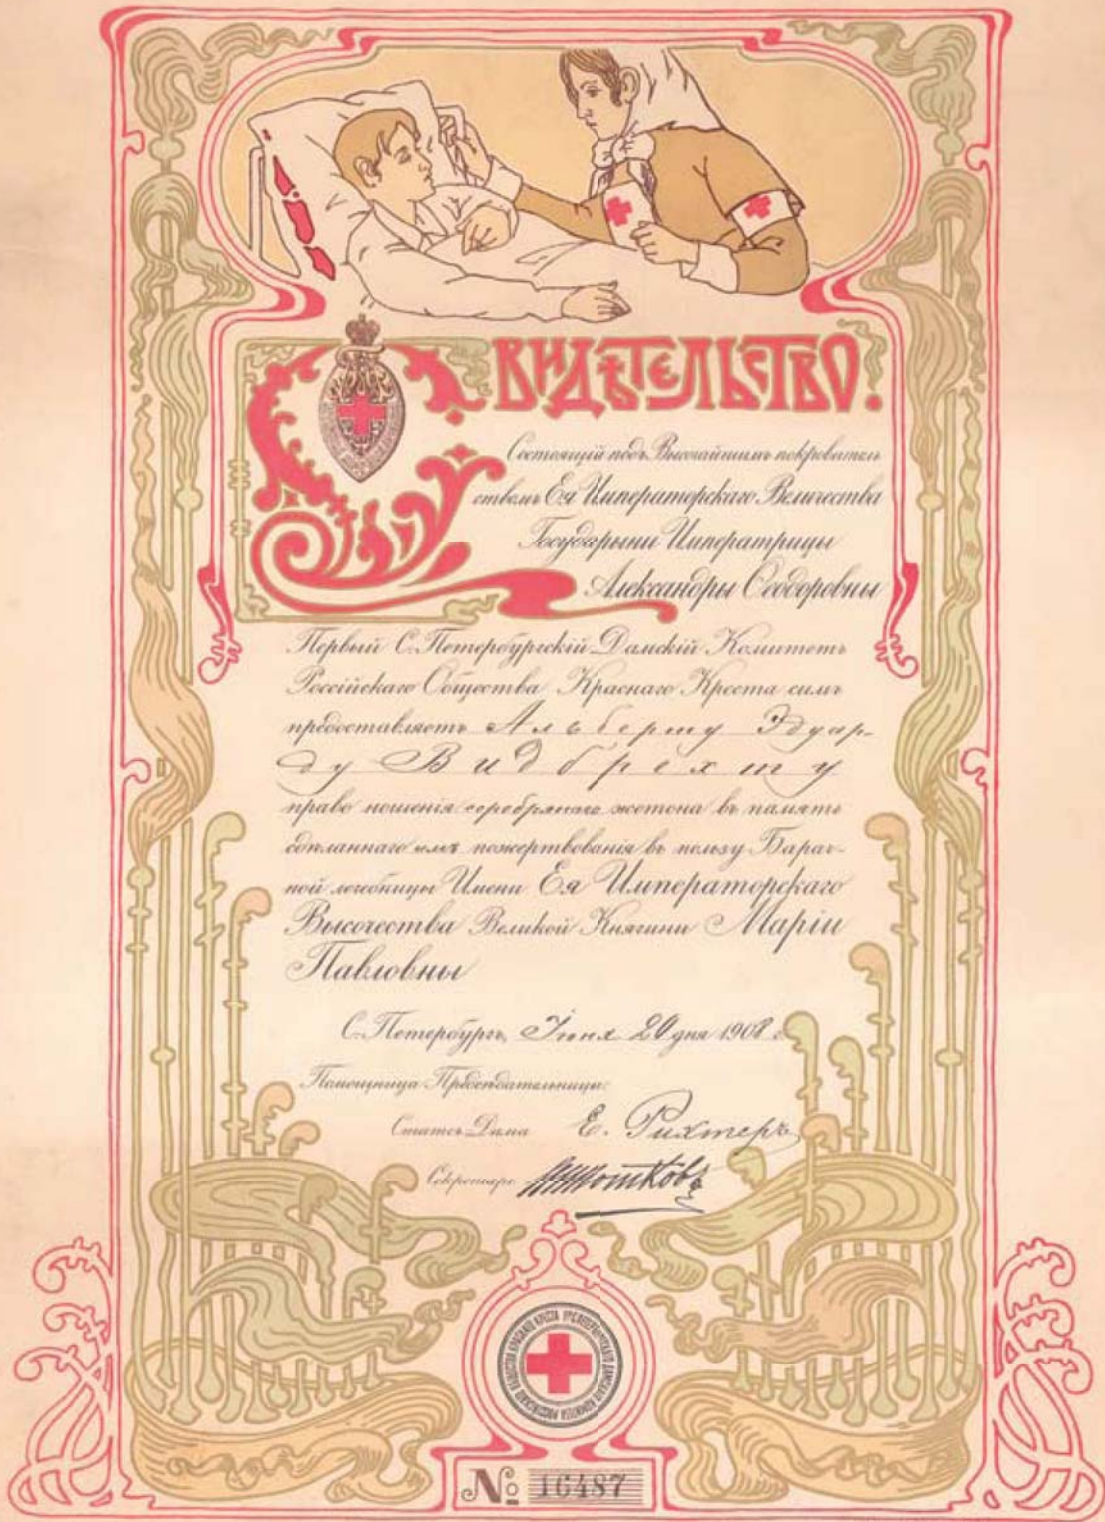 СВИДѢТЕЛЬСТВО.
Состоящій подъ Высочайшимъ покровитель
ствомъ Ея Императорскаго Величества
Государыни Императрицы
Александры Ѳеодоровны
Первый С.Петербургскій Дамскій Комитетъ
Россійскаго Общества Краснаго Креста симъ
предоставляетъ Альберту Эдуар-
ду Видбрехту
право ношенія серебрянаго жетона въ память
сдѣланнаго имъ пожертвованія въ пользу Барач-
ной лечебницы Имени Ея Императорскаго
Высочества Великой Княгини Маріи
Павловны
С.Петербургъ, Іюня 20 дня 1908 г.
Помощница Предсѣдательницы:
Статсъ-Дама Е. Рихтеръ
Секретарь
РОССІЙСКАГО ОБЩЕСТВА КРАСНАГО КРЕСТА ДАМСКАГО КОМИТЕТА
№ 16487